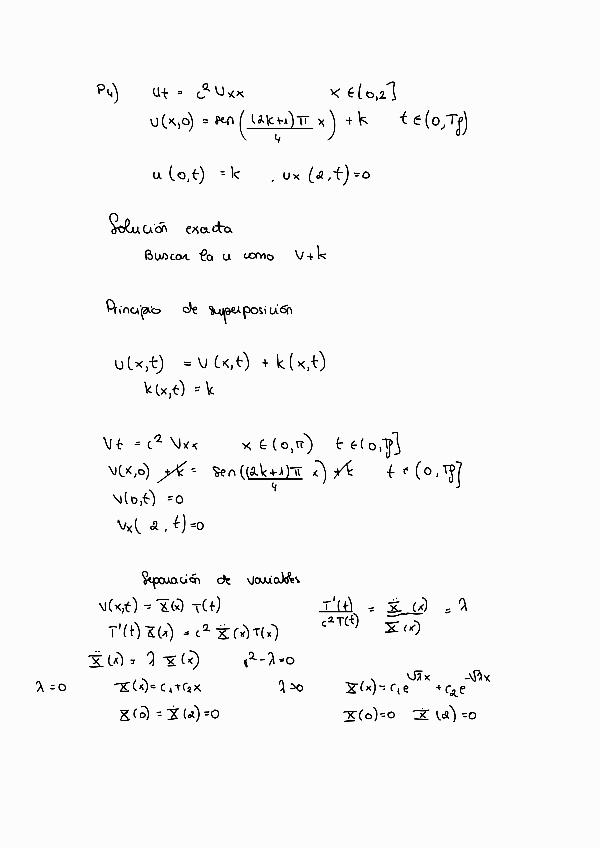 P4) Ut = c² Uxx x ∈ (0,2]
U(x,0) = sen((2k+1)π/4 x) + k t ∈ (0,Tf)
u(0,t) = k , ux(2,t)=0
Solución exacta
Buscar la u como V+k
Principio de superposición
U(x,t) = V(x,t) + k(x,t)
k(x,t) = k
Vt = c² Vxx x ∈ (0,π) t ∈ (0,Tf]
V(x,0) + k = sen((2k+1)π/4 x) + k t ∈ (0,Tf]
V(0,t) = 0
Vx(2,t)=0
Separación de variables
V(x,t) = X(x) T(t) T'(t)/c²T(t) = Ẍ(x)/X(x) = λ
T'(t) X(x) = c² Ẍ(x) T(x)
Ẍ(x) = λ X(x) r²-λ=0
λ=0 X(x)=c₁+c₂x λ>0 X(x)=c₁e^√λx + c₂e^-√λx
X(0) = Ẋ(2)=0 X(0)=0 Ẋ(2)=0